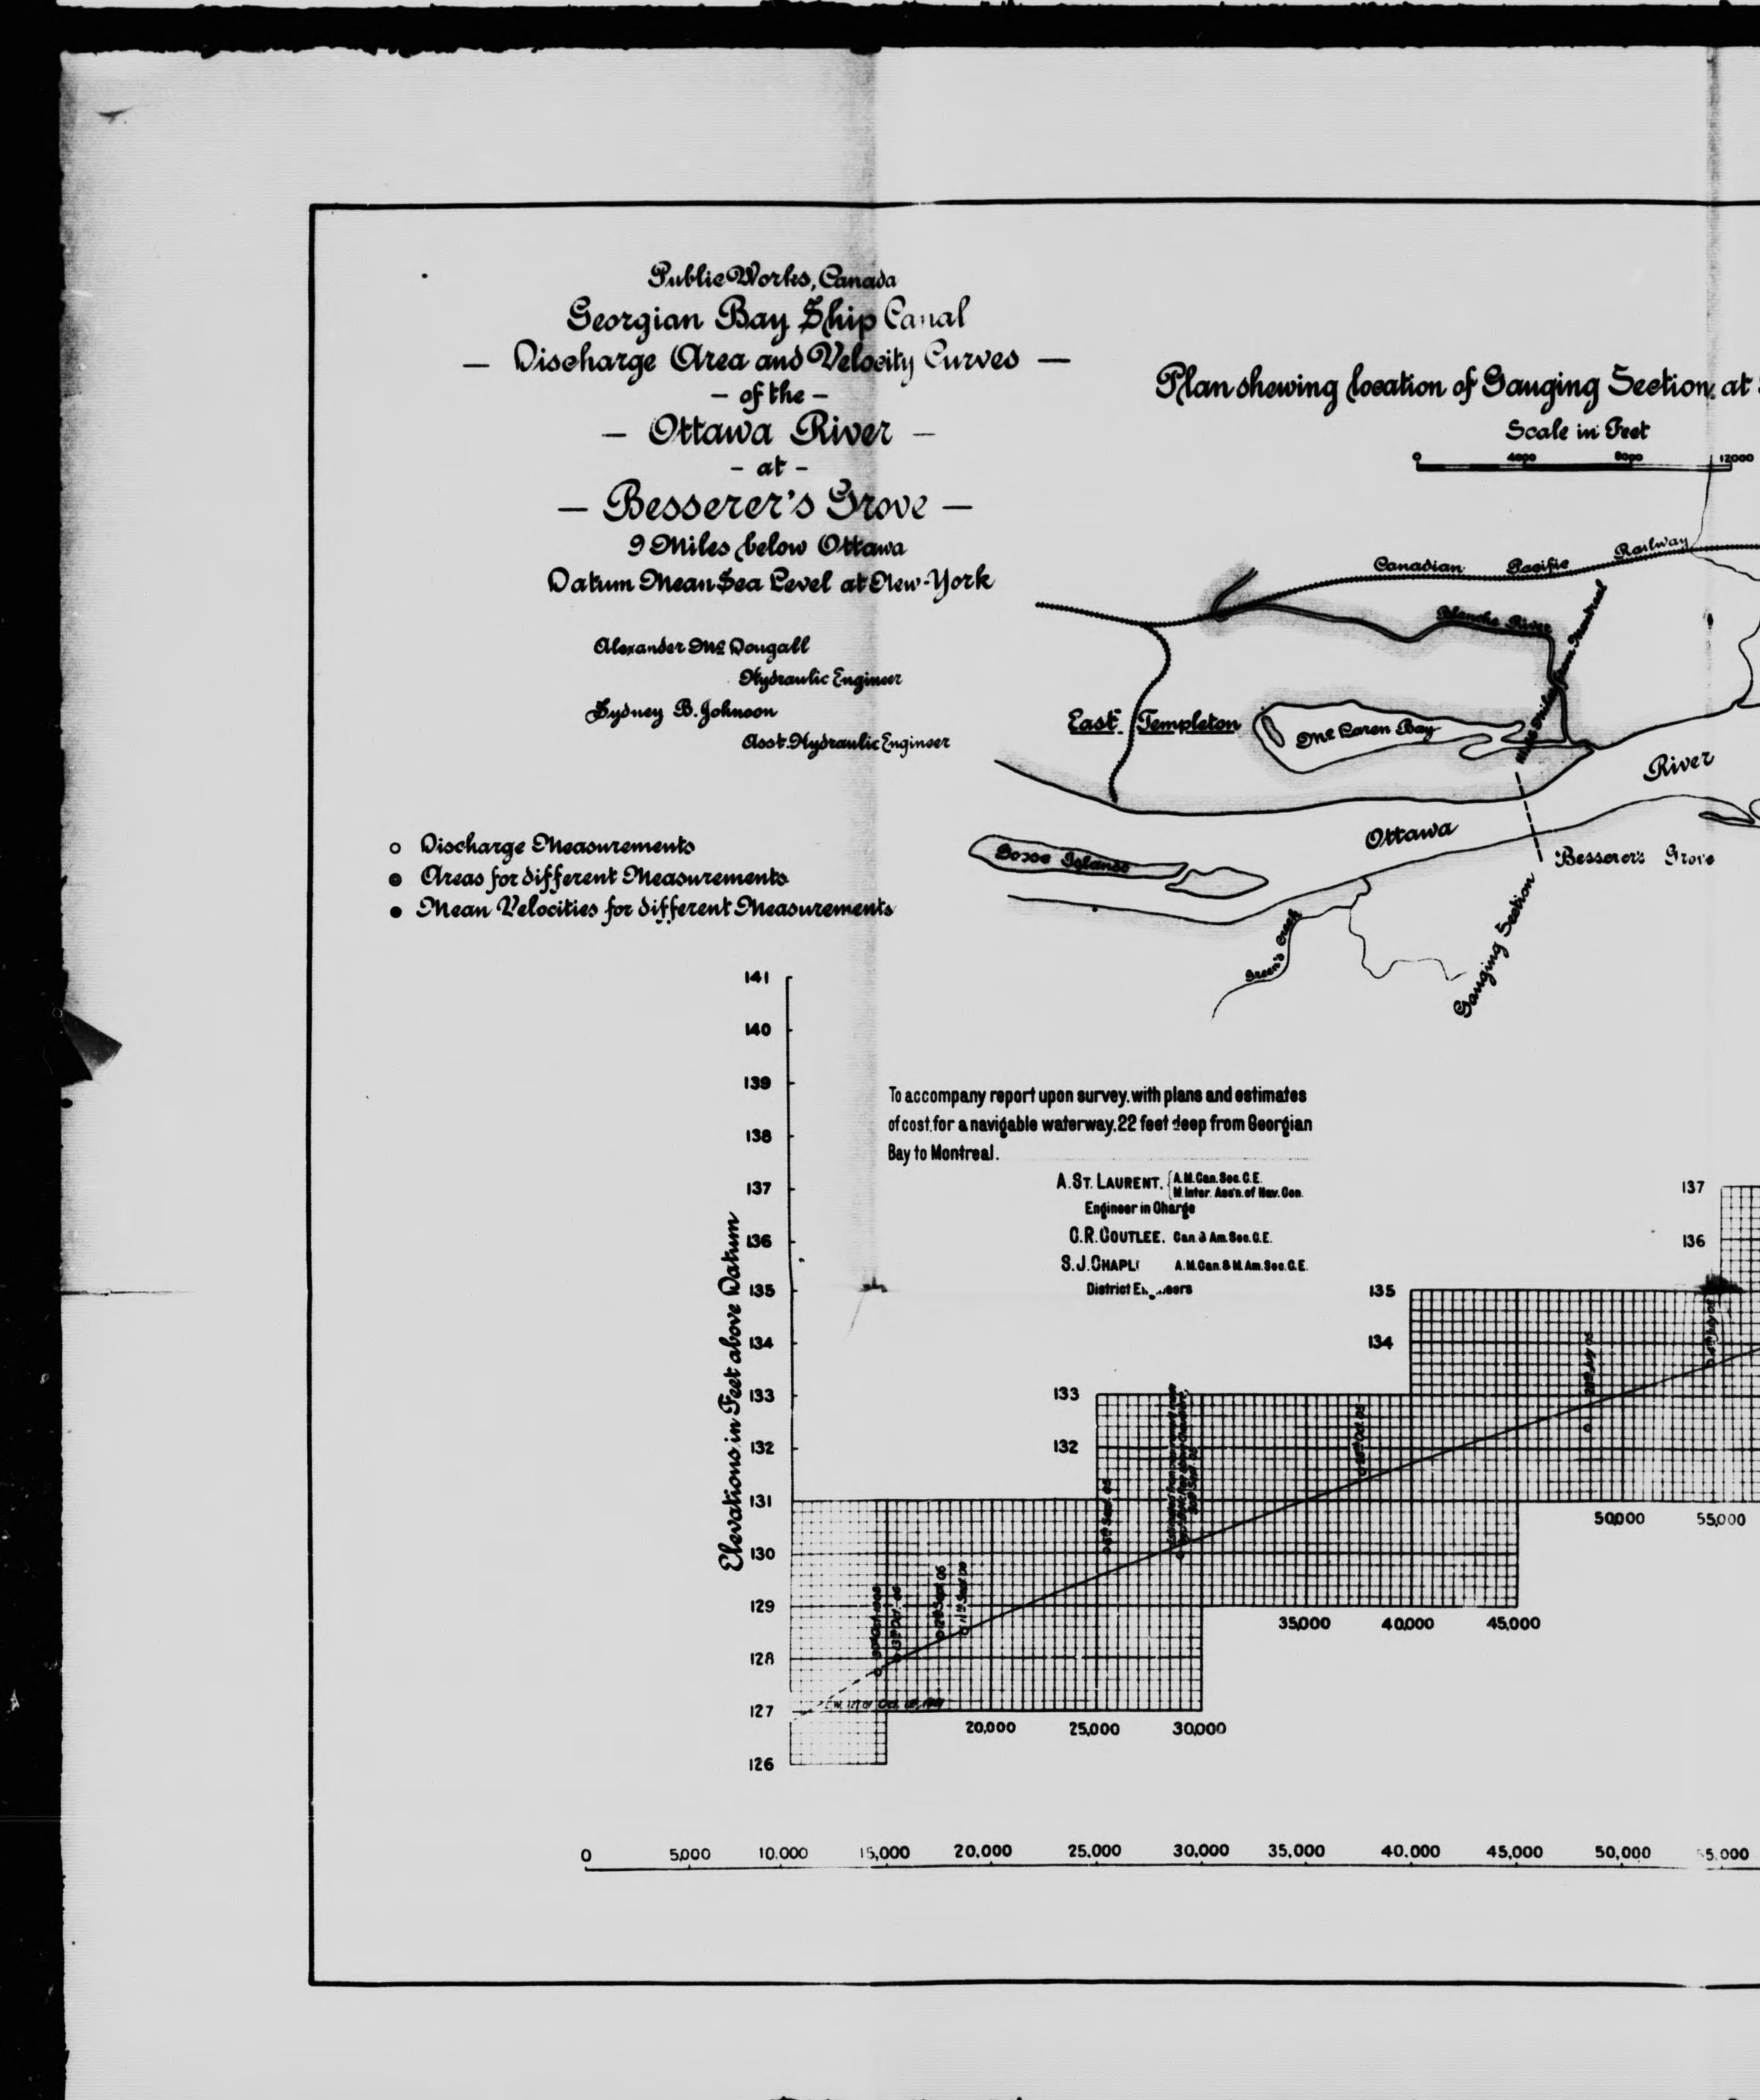 Public Works, Canada
Georgian Bay Ship Canal
— Discharge Area and Velocity Curves —
– of the –
— Ottawa River —
– at –
— Besserer's Grove —
9 Miles below Ottawa
Datum Mean Sea Level at New-York
Alexander Mc Dougall
Hydraulic Engineer
Sydney B. Johnson
Asst. Hydraulic Engineer
Discharge Measurements
Areas for different Measurements
Mean Velocities for different Measurements
Plan shewing location of Gauging Section at
Scale in Feet
0 4000 8000 12000
Canadian Pacific Railway
Blanche River
from Montreal
East Templeton
Mc Laren Bay
River
Ottawa
Besserer's Grove
Islands
Green's Creek
Gauging Section
To accompany report upon survey, with plans and estimates
of cost, for a navigable waterway, 22 feet deep from Georgian
Bay to Montreal.
A. St. Laurent, A.M. Can. Soc. C.E.
M. Inter. Ass'n. of Nav. Con.
Engineer in Charge
C. R. Coutlee. Can. & Am. Soc. C.E.
S. J. Chapl A.M. Can. & M. Am. Soc. C.E.
District
Elevations in Feet above Datum
141
140
139
138
137
136
135
134
133
132
131
130
129
128
127
126
137
136
135
134
133
132
12th Sept 06
11th Sept 06
Sept. 05
Oct. 05
July 05
50,000 55,000
35,000 40,000 45,000
20,000 25,000 30,000
0 5,000 10,000 15,000 20,000 25,000 30,000 35,000 40,000 45,000 50,000 55,000